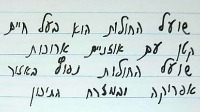 שועל החולות הוא בעל חיים
קטן עם אוזניים ארוכות
שועל החולות נפוץ באזור
אפרוקה ובמזרח התיכון